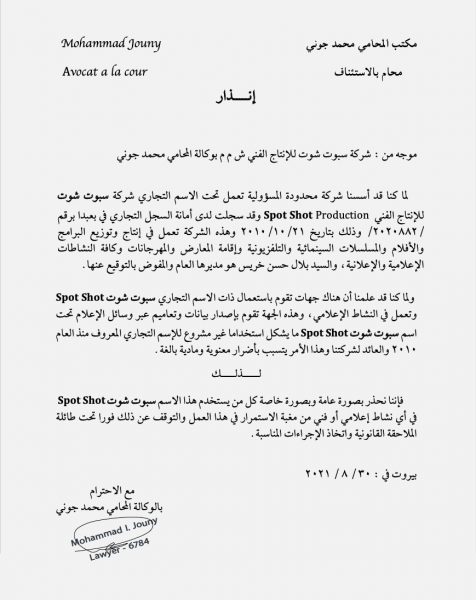 مكتب المحامي محمد جوني
Mohammad Jouny
محام بالاستئناف
Avocat a la cour
إنـــــذار
موجه من : شركة سبوت شوت للإنتاج الفني ش م م بوكالة المحامي محمد جوني
لما كنا قد أسسنا شركة محدودة المسؤولية تعمل تحت الاسم التجاري شركة سبوت شوت
للإنتاج الفني Spot Shot Production وقد سجلت لدى أمانة السجل التجاري في بعبدا برقم
/٢٠٢٠٨٨٢/ وذلك بتاريخ ٢٠١٠/١٠/٢١ وهذه الشركة تعمل في إنتاج وتوزيع البرامج
والأفلام والمسلسلات السينمائية والتلفزيونية وإقامة المعارض والمهرجانات وكافة النشاطات
الإعلامية والإعلانية، والسيد بلال حسن خريس هو مديرها العام والمفوض بالتوقيع عنها.
ولما كنا قد علمنا أن هناك جهات تقوم باستعمال ذات الاسم التجاري سبوت شوت Spot Shot
وتعمل في النشاط الإعلامي، وهذه الجهة تقوم بإصدار بيانات وتعاميم عبر وسائل الإعلام تحت
اسم سبوت شوت Spot Shot ما يشكل استخداما غير مشروع للإسم التجاري المعروف منذ العام
٢٠١٠ والعائد لشركتنا وهذا الأمر يتسبب بأضرار معنوية ومادية بالغة.
لـــذلـــك
فإننا نحذر بصورة عامة وبصورة خاصة كل من يستخدم هذا الاسم سبوت شوت Spot Shot
في أي نشاط إعلامي أو فني من مغبة الاستمرار في هذا العمل والتوقف عن ذلك فورا تحت طائلة
الملاحقة القانونية واتخاذ الإجراءات المناسبة.
بيروت في : ٣٠ / ٨ / ٢٠٢١
مع الاحترام
بالوكالة المحامي محمد جوني
Mohammad I. Jouny
Lawyer - 6784